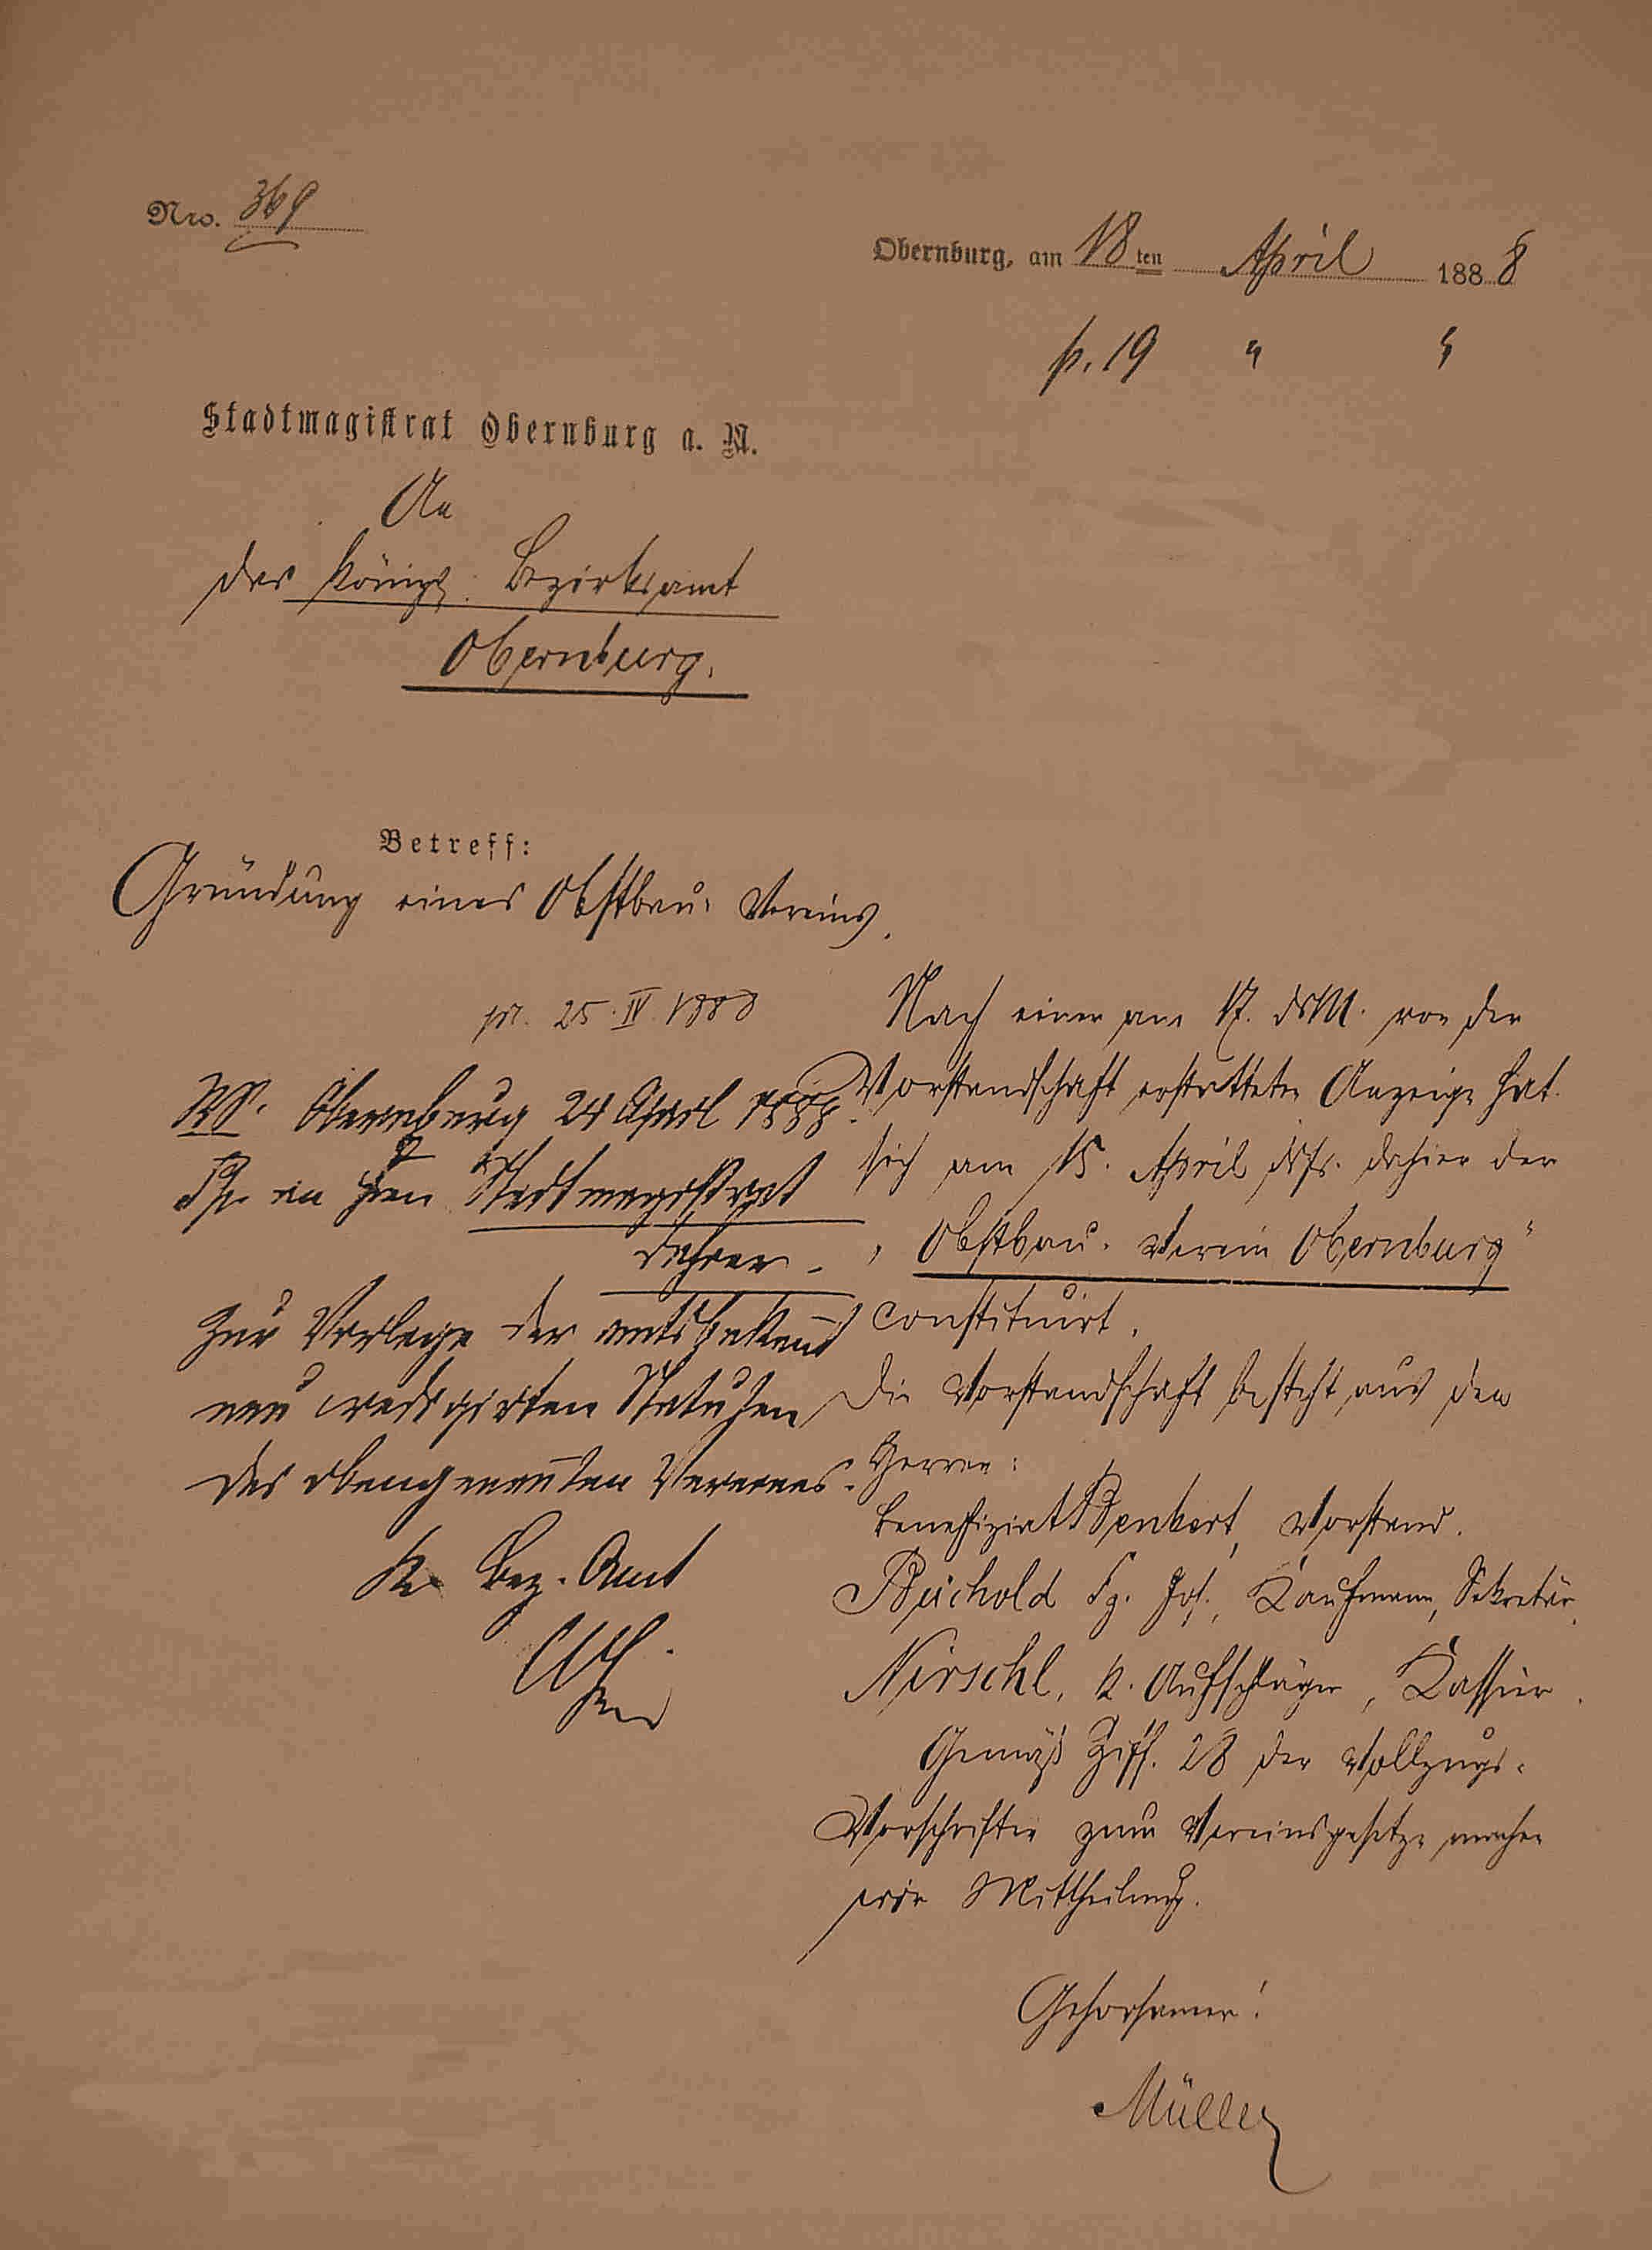 Nro. 369
Obernburg, am 18ten April 1888
p. 19 " "
Stadtmagistrat Obernburg a. M.
An
das Königl. Bezirksamt
Obernburg.
Betreff:
Gründung eines Obstbau-Vereins.
pr. 25. IV. 1888
Obernburg 24 April 1888.
an den Stadtmagistrat
dahier.
zur Vorlage der
neu redigirten Statuten
des obengenannten Vereines.
K. Bez. Amt
Nach einer am 17. ds M. von der
Vorstandschaft erstatteten Anzeige hat
sich am 15. April ds Js. dahier der
„Obstbau-Verein Obernburg"
constituirt.
Die Vorstandschaft besteht aus den
Herren:
Benefiziat, Vorstand.
Büchold Fz. Jos., Kaufmann, Sekretär,
Nirschl, k. Aufschläger, Kassier.
Gemäß Ziff. 28 der Vollzugs-
Vorschriften zum Vereinsgesetze machen
wir Mittheilung.
Gehorsamer!
Müller